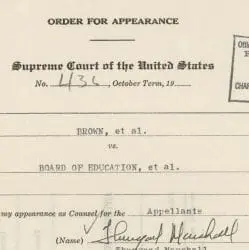 ORDER FOR APPEARANCE
Supreme Court of the United States
No. 436, October Term, 19
BROWN, et al.
vs.
BOARD OF EDUCATION, et al.
my appearance as Counsel for the Appellants
(Name) Thurgood Marshall
Thurgood Marshall